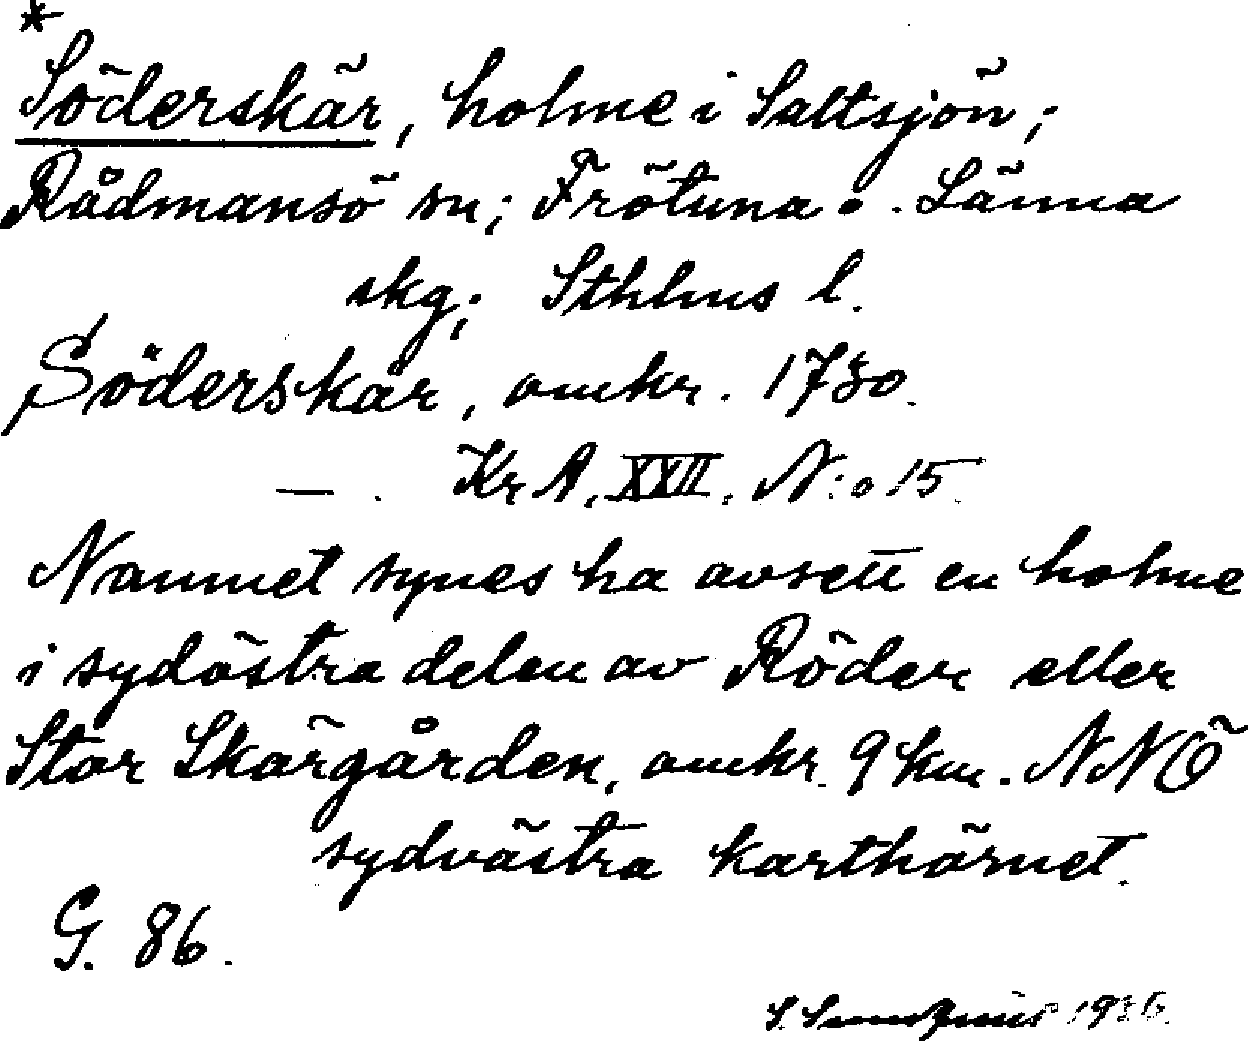 *
Söderskär, holme i Saltsjön;
Rådmansö sn; Frötuna o. Länna
skg; Sthlms l.
Söderskär, omkr. 1730.
— . KrA. XXII. N:o 15.
Namnet synes ha avsett en holme
i sydöstra delen av Röder eller
Stor Skärgården, omkr. 9 km. NNÖ
sydvästra karthörnet.
G. 86.
S. 1936.